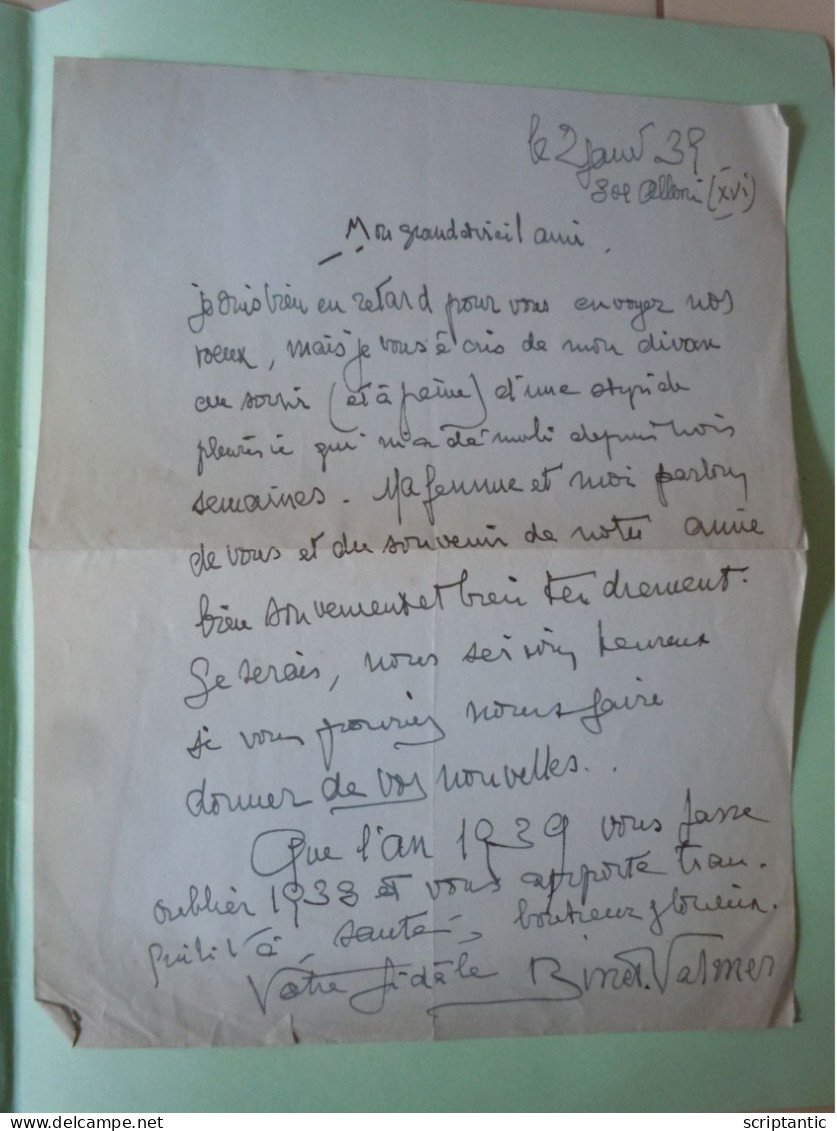 le 2 janv 39
(XVI)
Mon grand et vieil ami,
je suis bien en retard pour vous envoyer nos
voeux, mais je vous écris de mon divan
au sortir (et à peine) d'une stupide
pleurésie qui m'a démoli depuis trois
semaines. Ma femme et moi parlons
de vous et du souvenir de notre amie
bien souvement et bien tendrement.
Je serais, nous serions heureux
si vous pouviez nous faire
donner de vos nouvelles..
Que l'an 1939 vous fasse
oublier 1938 et vous apporte tran-
quillité, santé, glorieux.
Votre fidèle Binet-Valmer
www.delcampe.net
scriptantic